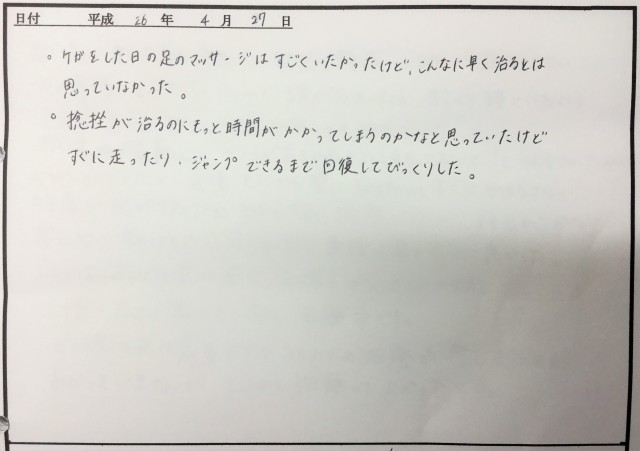 日付 平成 26 年 4 月 27 日
。ケガをした日の足のマッサージはすごくいたかったけど、こんなに早く治るとは
思っていなかった。
。捻挫が治るのにもっと時間がかかってしまうのかなと思っていたけど
すぐに走ったり、ジャンプできるまで回復してびっくりした。